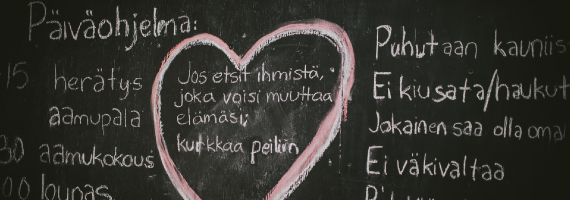 Päiväohjelma:
15 herätys
aamupala
30 aamukokous
00 lounas
Jos etsit ihmistä,
joka voisi muuttaa
elämäsi;
kurkkaa peiliin
Puhutaan kauniis
Ei kiusata/haukut
Jokainen saa olla oma
Ei väkivaltaa